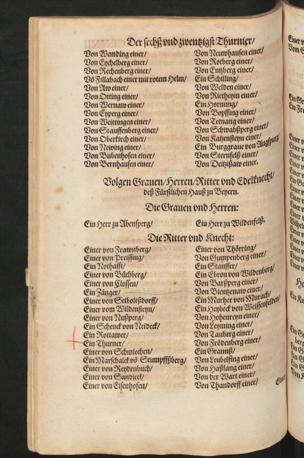 Der sechß und zwentzigst Thurnier/
Von Wemding einer/
Von Eychelberg einer/
Von Rechenberg einer/
Vo Fillabach einer mit rotem Helm/
Von Aw einer/
Von Otting einer/
Von Wernaw einer/
Von Eyperg einer/
Von Weittingen einer/
Von Stauffenberg einer/
Von Oberkirch einer/
Von Newing einer/
Von Bubenhofen einer/
Von Bernhausen einer/
Von Neunhausen einer/
Von Rotberg einer/
Von Entzberg einer/
Ein Schilling/
Von Welden einer/
Von Rietheym einer/
Ein Hornung/
Von Bopffing einer/
Von Tetnang einer/
Von Schwabsperg einer/
Von Kaltensteyn einer/
Ein Burggraue von Augspurg/
Von Sternfelß einer/
Von Detzißaw einer/
Volgen Grauen/Herren/Ritter und Edelknecht/
deß Fürstlichen Hauß zu Beyern.
Die Grauen und Herren:
Ein Herr zu Abensperg/
Ein Herr zu Wildenfelß.
Die Ritter und Knecht:
Einer von Frawnberg/
Einer von Preissing/
Ein Nothafft/
Einer von Büchberg/
Einer von Closen/
Ein Zänger/
Einer von Seiboltzdorff/
Einer vom Wildensteyn/
Einer von Nußperg/
Ein Schenck von Neideck/
Ein Rottawer/
Ein Thurner/
Einer von Schmiechen/
Ein Marschalck vo Stumpffßberg/
Einer von Reydenbuch/
Einer von Sandicel/
Einer von Eisenhofen/
Einer von Thöring/
Einer von Gumpenberg einer/
Ein Stauffer/
Ein Ebron von Wildenberg/
Von Barsperg einer/
Von Bientzenaw einer/
Ein Murher von Murach/
Ein Heybeck von Weissenfelden/
Von Hohenreyn einer/
Von Leyning einer/
Von Tauberg einer/
Von Frödenberg einer/
Ein Granuß/
Von Leubelfing einer/
Von Haßlang einer/
Von der Wart einer/
Von Thandorff einer/